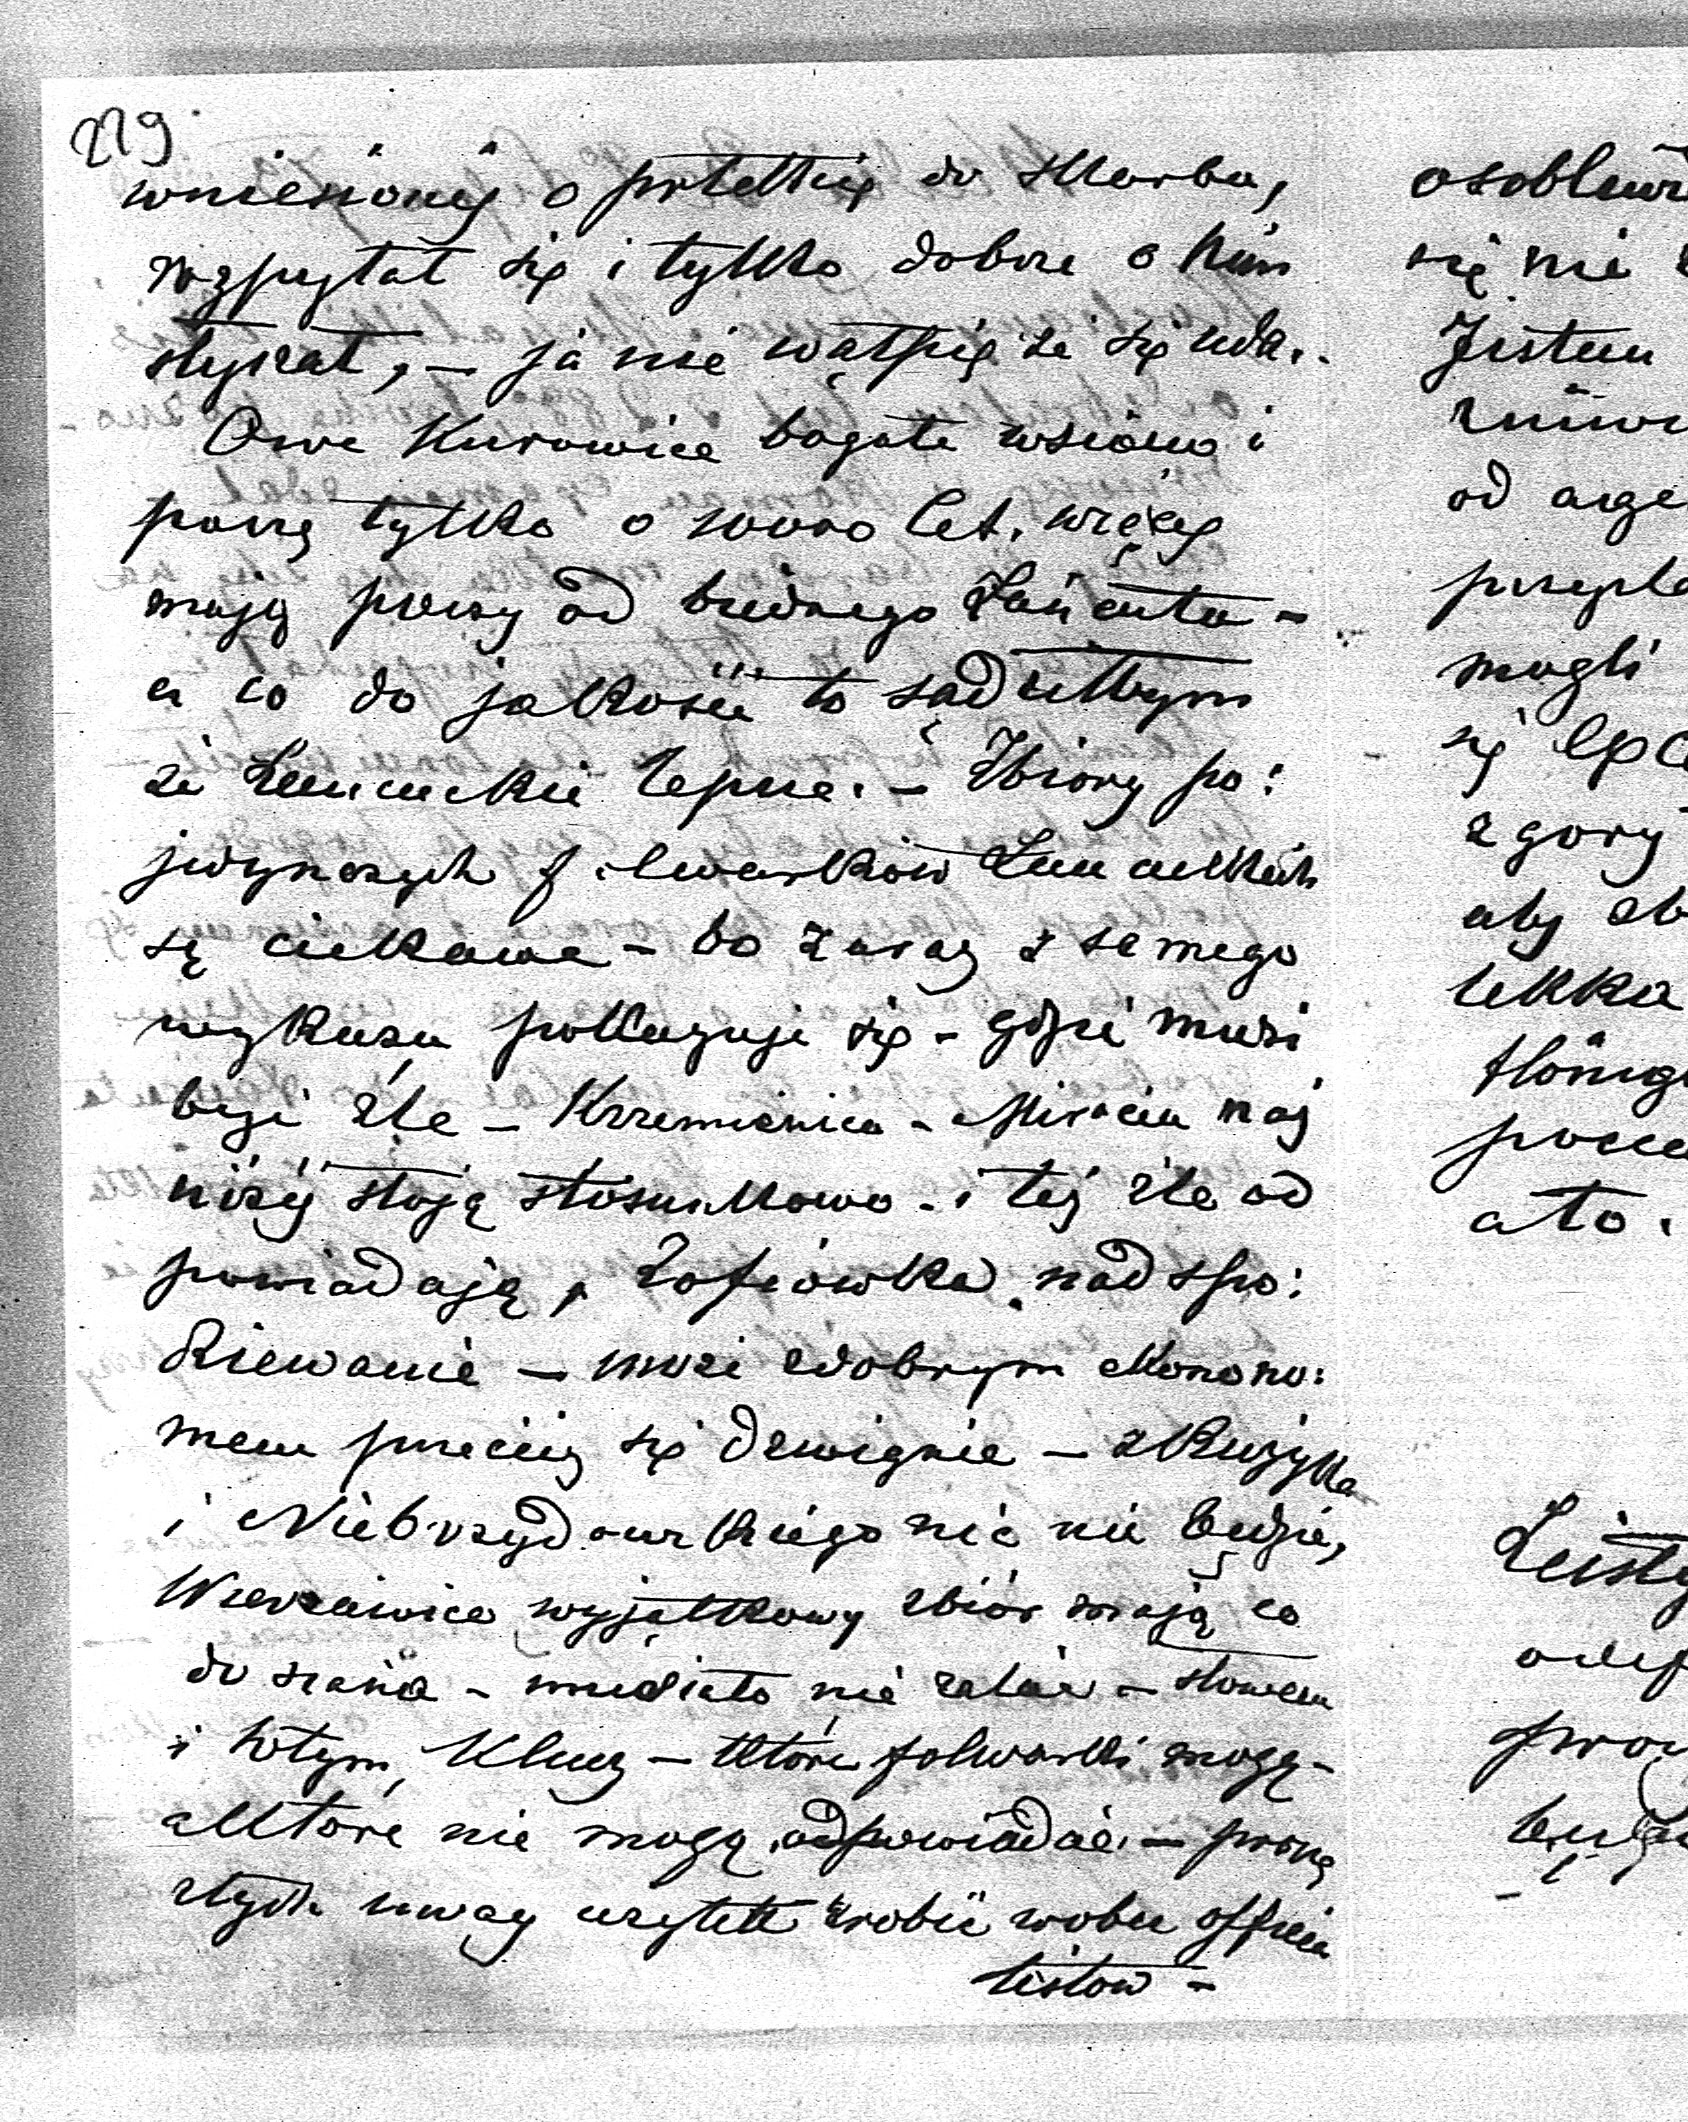 219
wniesionéj o prtekcię do skarbu,
rozpytał się i tylko dobrze o nim
słyszał, – ja nie wątpię ze się uda. -
Owe Kurowice bogate w słomę i
paszę tylko o 1000 Cet. więcej
mają paszy od biednego Łańcuta -
a co do jakości to sądziłbym
że Łancuckie lepsze. – Zbiory po:
jedynczych folwarków Łancuckich
są ciekawe – bo zaraz z samego
wykazu pokazuje się – gdzie musi
być złe – Krzemienica – Miracin naj
niżéj stoją stosunkowo – i téż źle od
powiadają, Zofiówka nad spo:
dziewanie – może z dobrym ekono:
mem przeciez się dzwignie –
i Niebrzydowskiego nic nie będzie,
Wierzawice wyjątkowy zbiór mają co
do siana – nie – słowem
i w tym Klucz – które folwarki mogą -
a które nie mogą odpowiadać. – proszę
z tych uwag użytek zrobić wobec officia
listów –
osobliw
się nie
Jestem
zniw
od
przepla
mogli
się
z gory
aby zb
lekka
ato.